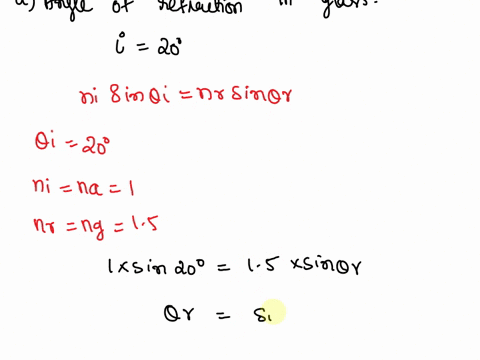 a) Angle of refraction in glass.
i = 20°
ni sinθi = nr sinθr
θi = 20°
ni = na = 1
nr = ng = 1.5
1 x sin 20° = 1.5 x sinθr
θr = si